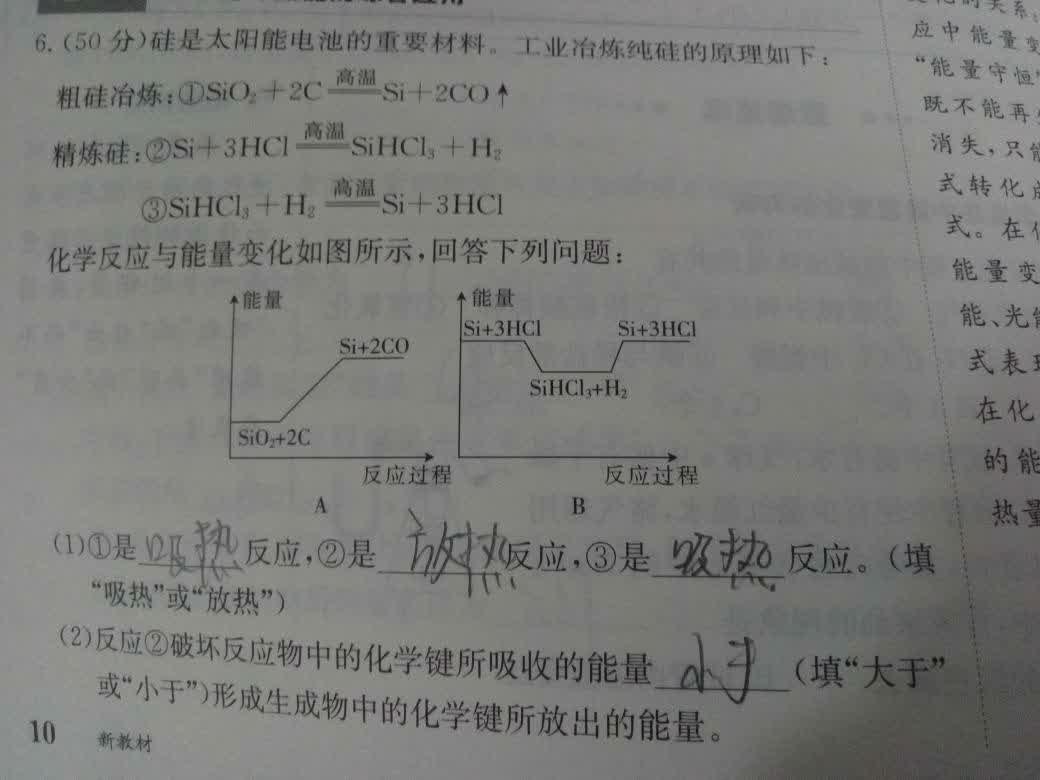 6.(50分)硅是太阳能电池的重要材料。工业冶炼纯硅的原理如下：
粗硅冶炼：①SiO₂+2C 高温 Si+2CO↑
精炼硅：②Si+3HCl 高温 SiHCl₃+H₂
③SiHCl₃+H₂ 高温 Si+3HCl
化学反应与能量变化如图所示，回答下列问题：
能量
Si+2CO
SiO₂+2C
反应过程
A
能量
Si+3HCl
Si+3HCl
SiHCl₃+H₂
反应过程
B
(1)①是吸热反应，②是放热反应，③是吸热反应。(填
“吸热”或“放热”)
(2)反应②破坏反应物中的化学键所吸收的能量小于(填“大于”
或“小于”)形成生成物中的化学键所放出的能量。
10 新教材
应中能量变
“能量守恒
既不能再
消失，只能
式转化成
式。在
能量变
能、光能
式表现
在化
的能
热量